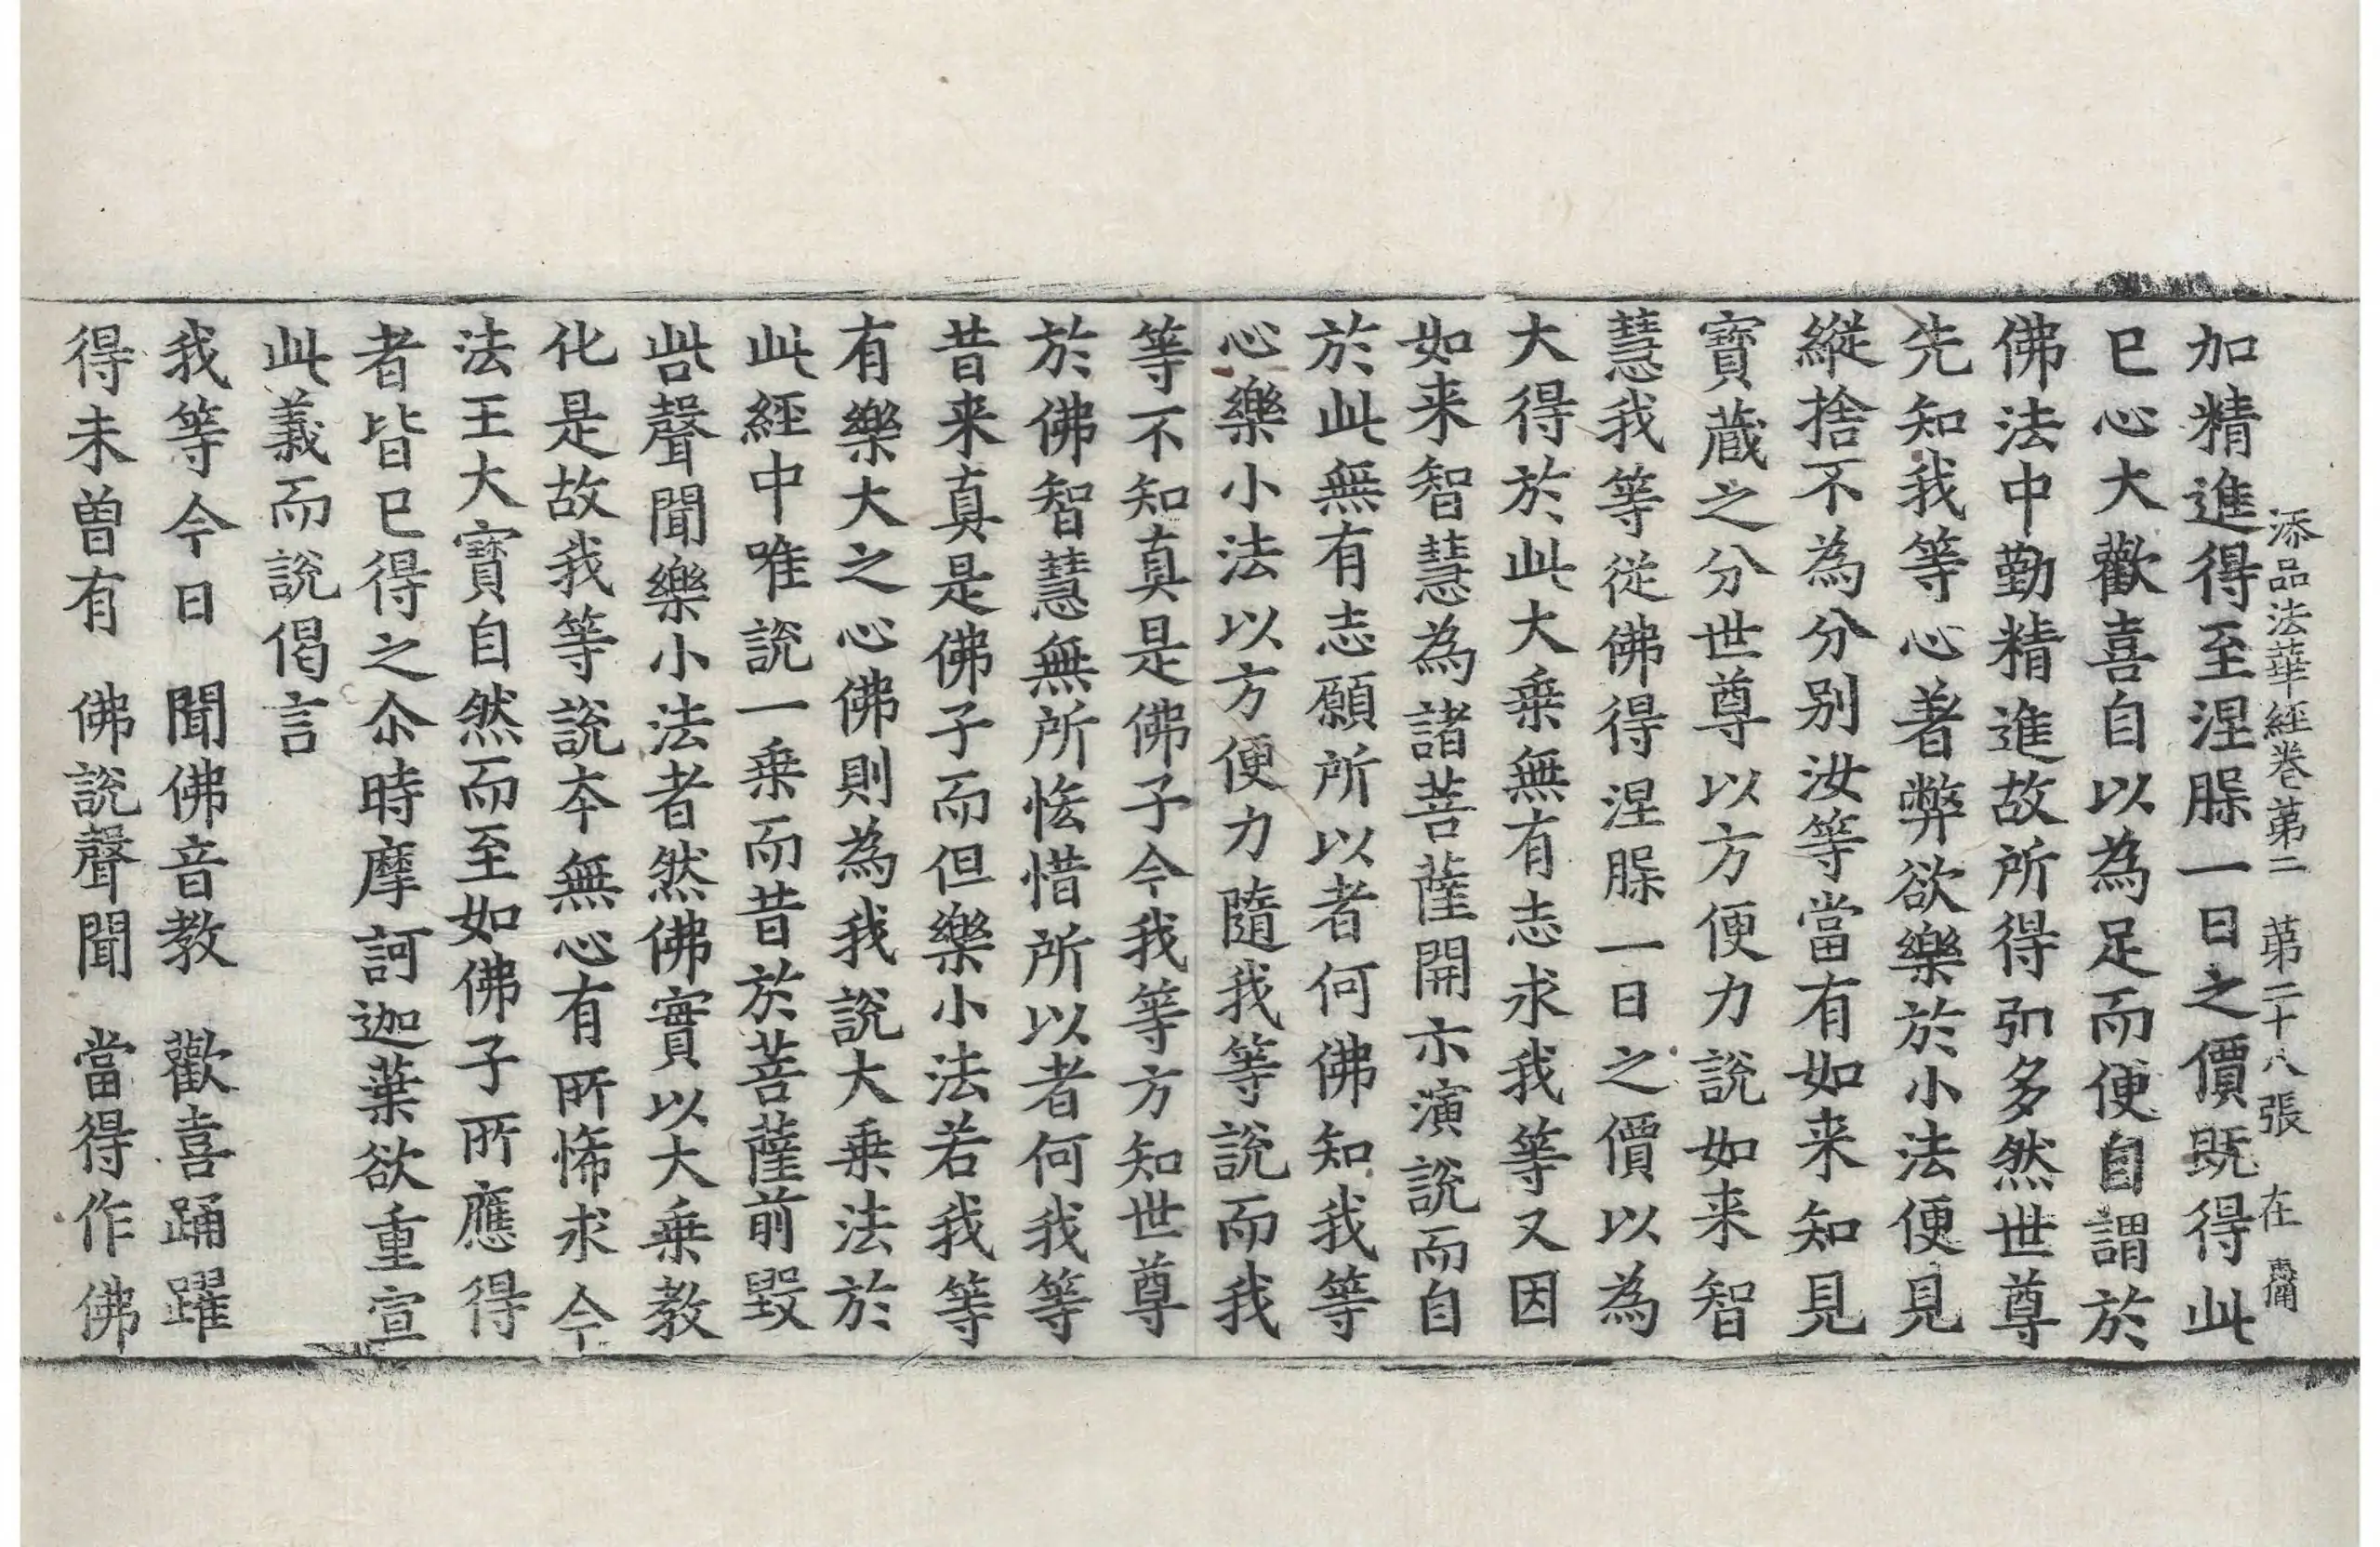 添品法華經卷第二　第二十八張　在
加精進得至涅槃一日之價既得此
已心大歡喜自以為足而便自謂於
佛法中勤精進故所得弘多然世尊
先知我等心著弊欲樂於小法便見
縱捨不為分別汝等當有如来知見
寶蔵之分世尊以方便力說如来智
慧我等從佛得涅槃一日之價以為
大得於此大乗無有志求我等又因
如来智慧為諸菩薩開示演說而自
於此無有志願所以者何佛知我等
心樂小法以方便力隨我等說而我
等不知真是佛子今我等方知世尊
於佛智慧無所悋惜所以者何我等
昔来真是佛子而但樂小法若我等
有樂大之心佛則為我說大乗法於
此經中唯說一乗而昔於菩薩前毀
呰聲聞樂小法者然佛實以大乗教
化是故我等說本無心有所悕求今
法王大寶自然而至如佛子所應得
者皆已得之尒時摩訶迦葉欲重宣
此義而說偈言
我等今日　聞佛音教　歡喜踊躍
得未曽有　佛說聲聞　當得作佛